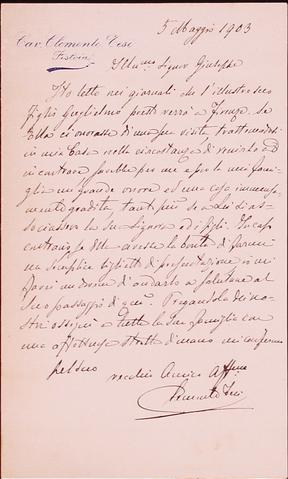 5 Maggio 1903
Cav. Clemente Tesi
Pistoia
Illu.mo Signor Giuseppe
Ho letto nei giornali che l'illustre suo
figlio Guglielmo presto verrà a Firenze. Se
Ella ci onorasse di una sua visita trattenendosi
in mia casa nella circostanza di venirlo ad
incontrare sarebbe per me e per la mia fami-
glia un grande onore ed una cosa immensa-
mente gradita, tanto più se a Lei si as-
sociassero la sua Signora ed i figli. In caso
contrario se Ella avesse la bontà di farmi
un semplice biglietto di presentazione io mi
farei un dovere di andarlo a salutare al
suo passaggio di qui. Pregandola dei no-
stri ossequi a tutta la sua famiglia con
una affettuosa stretta di mano mi confermo
pel suo
vecchio Amico Aff.mo
Clemente Tesi